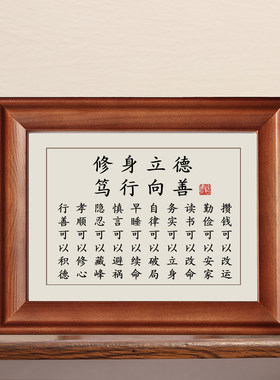 修身立德
笃行向善
攒钱可以改运
勤俭可以安家
读书可以改命
务实可以立身
自律可以破局
早睡可以续命
慎言可以避祸
隐忍可以藏峰
孝顺可以修心
行善可以积德